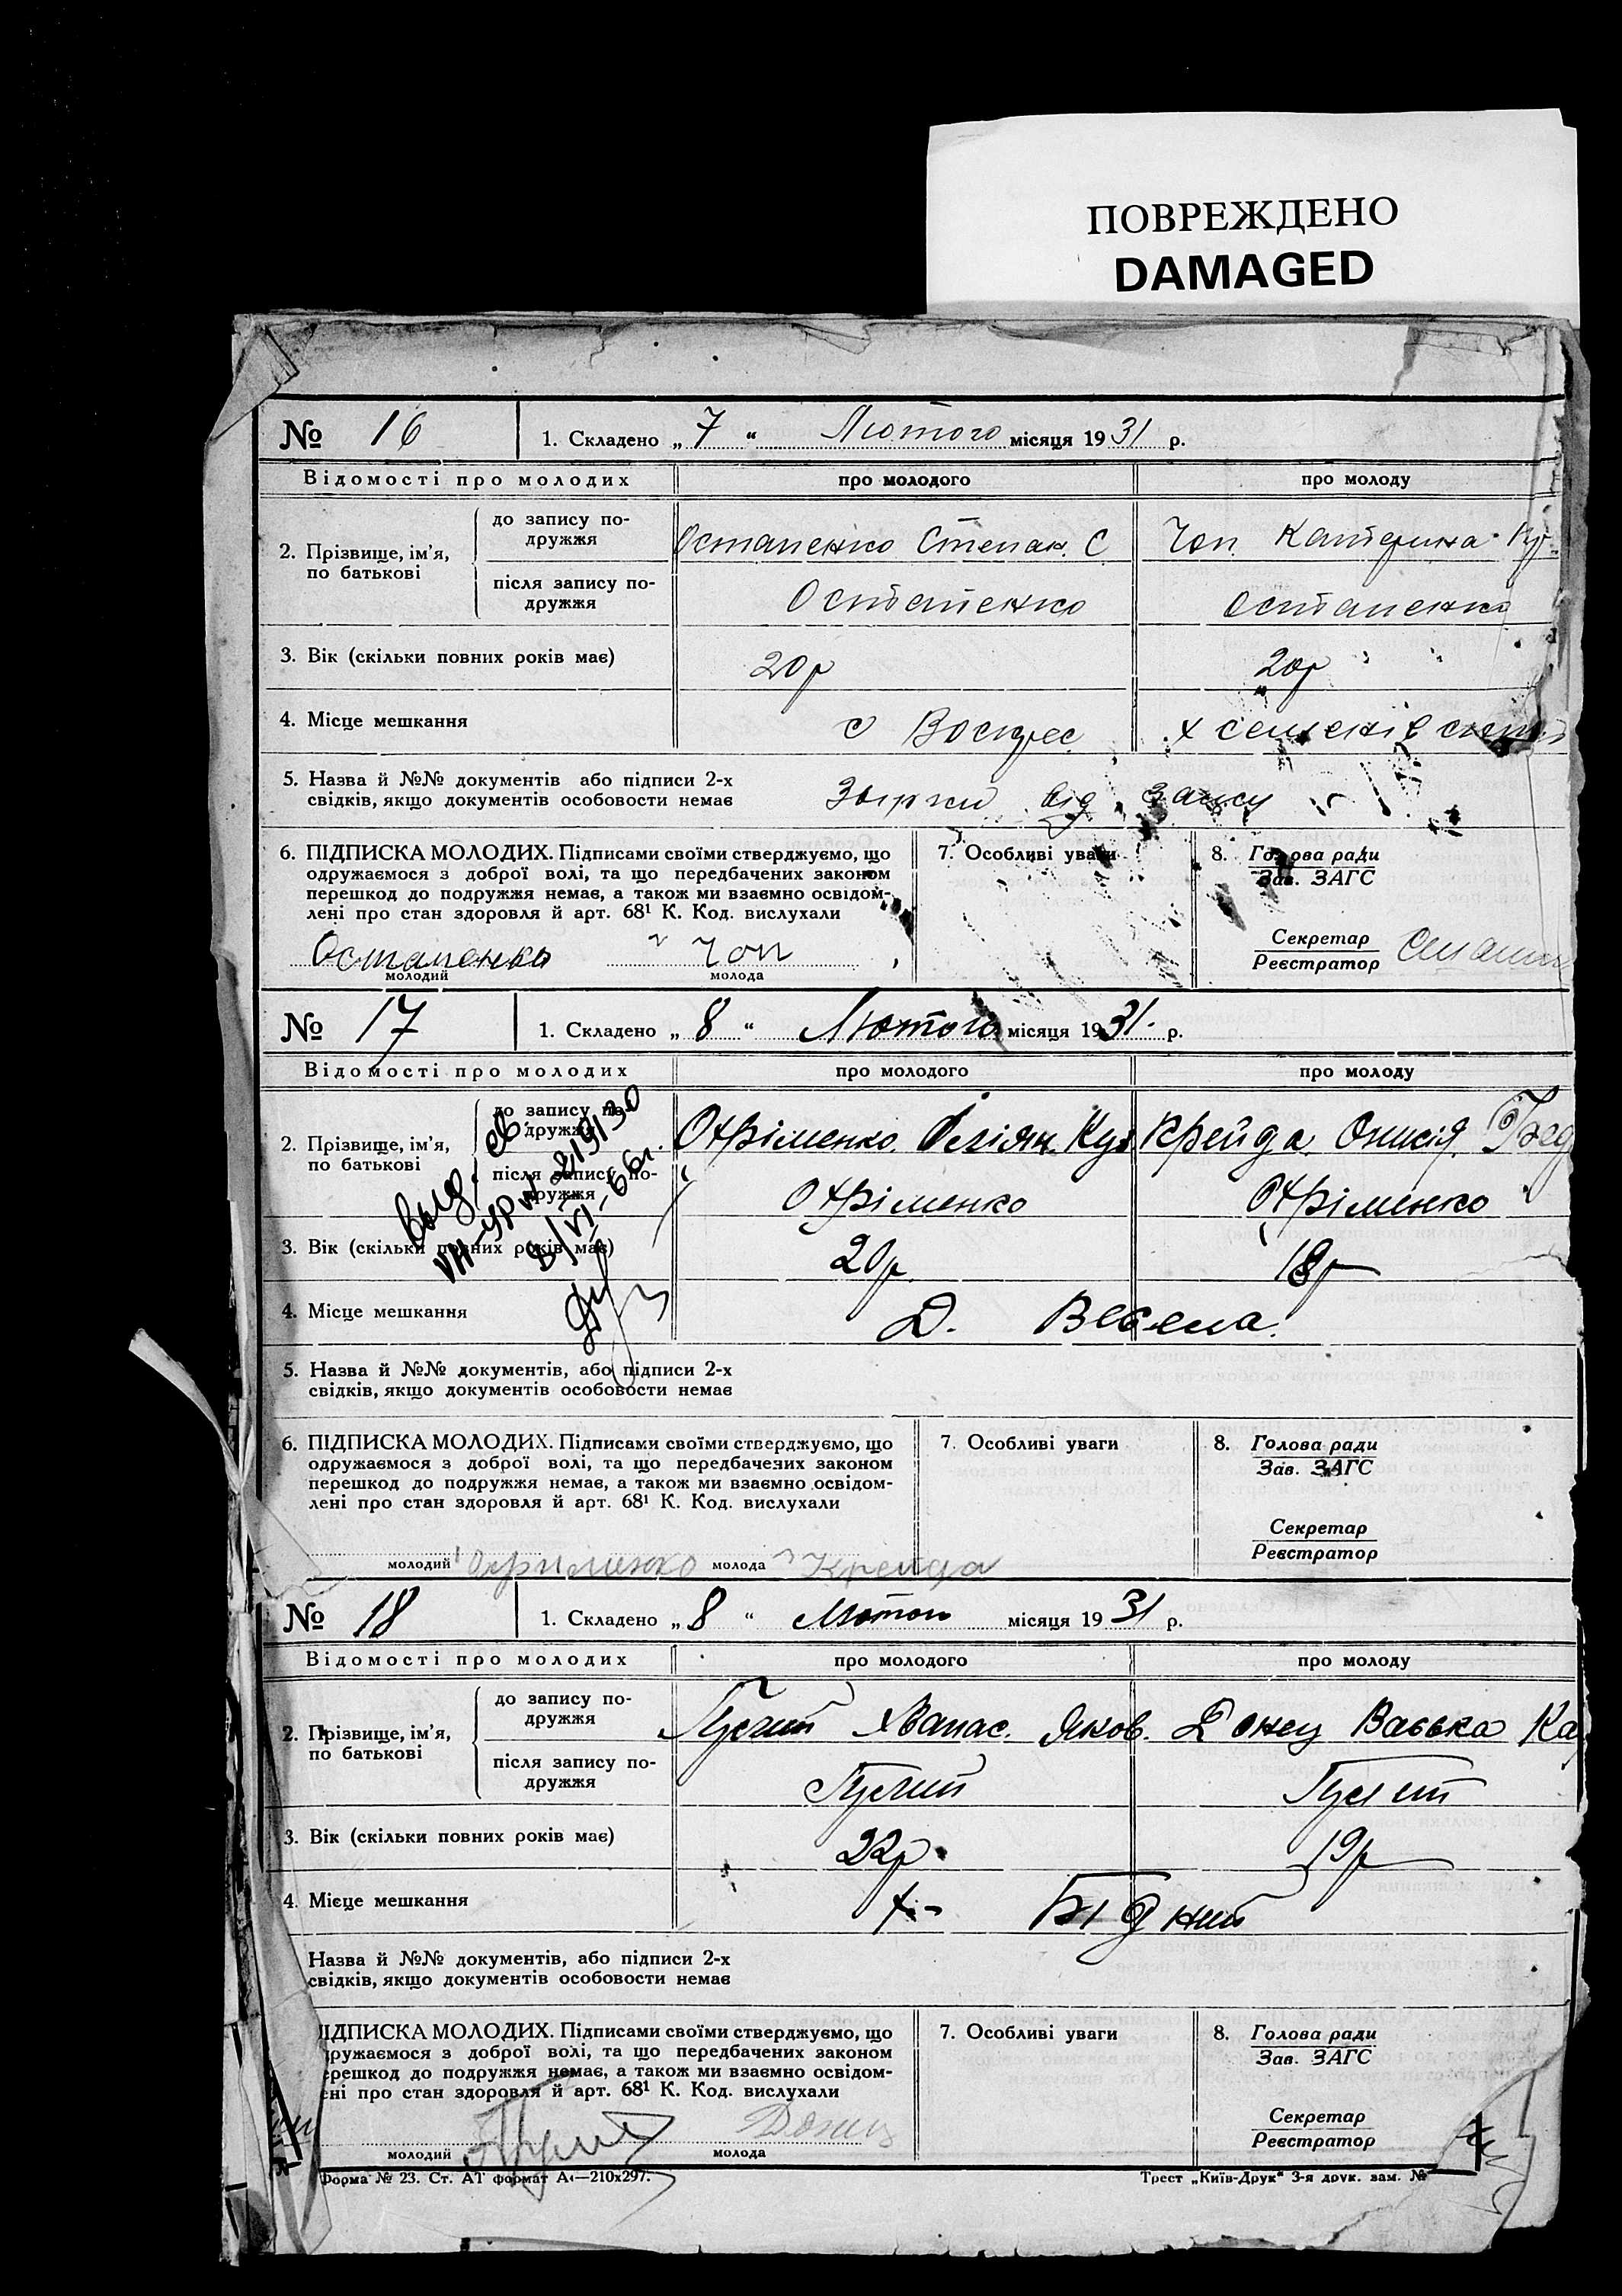 ПОВРЕЖДЕНО
DAMAGED
№ 16 1. Складено „ 7 “ Лютого місяця 19 31 р.
Відомості про молодих про молодого про молоду
2. Прізвище, ім’я, по батькові
до запису подружжя Остапенко Степан. С Чоп. Катерина
після запису подружжя Остапенко Остапенко
3. Вік (скільки повних років має) 20р 20р
4. Місце мешкання с Воскрес х
5. Назва й №№ документів або підписи 2-х
свідків, якщо документів особовости немає від
6. ПІДПИСКА МОЛОДИХ. Підписами своїми стверджуємо, що
одружаємося з доброї волі, та що передбачених законом
перешкод до подружжя немає, а також ми взаємно освідом-
лені про стан здоровля й арт. 68¹ К. Код. вислухали
7. Особливі уваги
8. Голова ради
Зав. ЗАГС
Секретар
Реєстратор
Остапенко Чоп
молодий молода
№ 17 1. Складено „ 8 “ Лютого місяця 19 31. р.
Відомості про молодих про молодого про молоду
2. Прізвище, ім’я, по батькові
до запису подружжя Охріменко. Куз Крейда Онисія
після запису подружжя Охріменко Охріменко
выд. св.
3. Вік (скільки повних років має) 20р 18р
4. Місце мешкання Д. Весела.
5. Назва й №№ документів, або підписи 2-х
свідків, якщо документів особовости немає
6. ПІДПИСКА МОЛОДИХ. Підписами своїми стверджуємо, що
одружаємося з доброї волі, та що передбачених законом
перешкод до подружжя немає, а також ми взаємно освідом-
лені про стан здоровля й арт. 68¹ К. Код. вислухали
7. Особливі уваги
8. Голова ради
Зав. ЗАГС
Секретар
Реєстратор
молодий Охрименко молода Крейда
№ 18 1. Складено „ 8 “ Лютого місяця 19 31 р.
Відомості про молодих про молодого про молоду
2. Прізвище, ім’я, по батькові
до запису подружжя Хванас. Яков. Донец Васька Ка
після запису подружжя
3. Вік (скільки повних років має) 22р. 19р
4. Місце мешкання х.- Бідний
Назва й №№ документів, або підписи 2-х
свідків, якщо документів особовости немає
ІДПИСКА МОЛОДИХ. Підписами своїми стверджуємо, що
дружаємося з доброї волі, та що передбачених законом
ерешкод до подружжя немає, а також ми взаємно освідом-
ені про стан здоровля й арт. 68¹ К. Код. вислухали
7. Особливі уваги
8. Голова ради
Зав. ЗАГС
Секретар
Реєстратор
Донец
молодий молода
Форма № 23. Ст. АТ формат А₄—210х297. Трест „Київ-Друк“ 3-я друк. зам. №